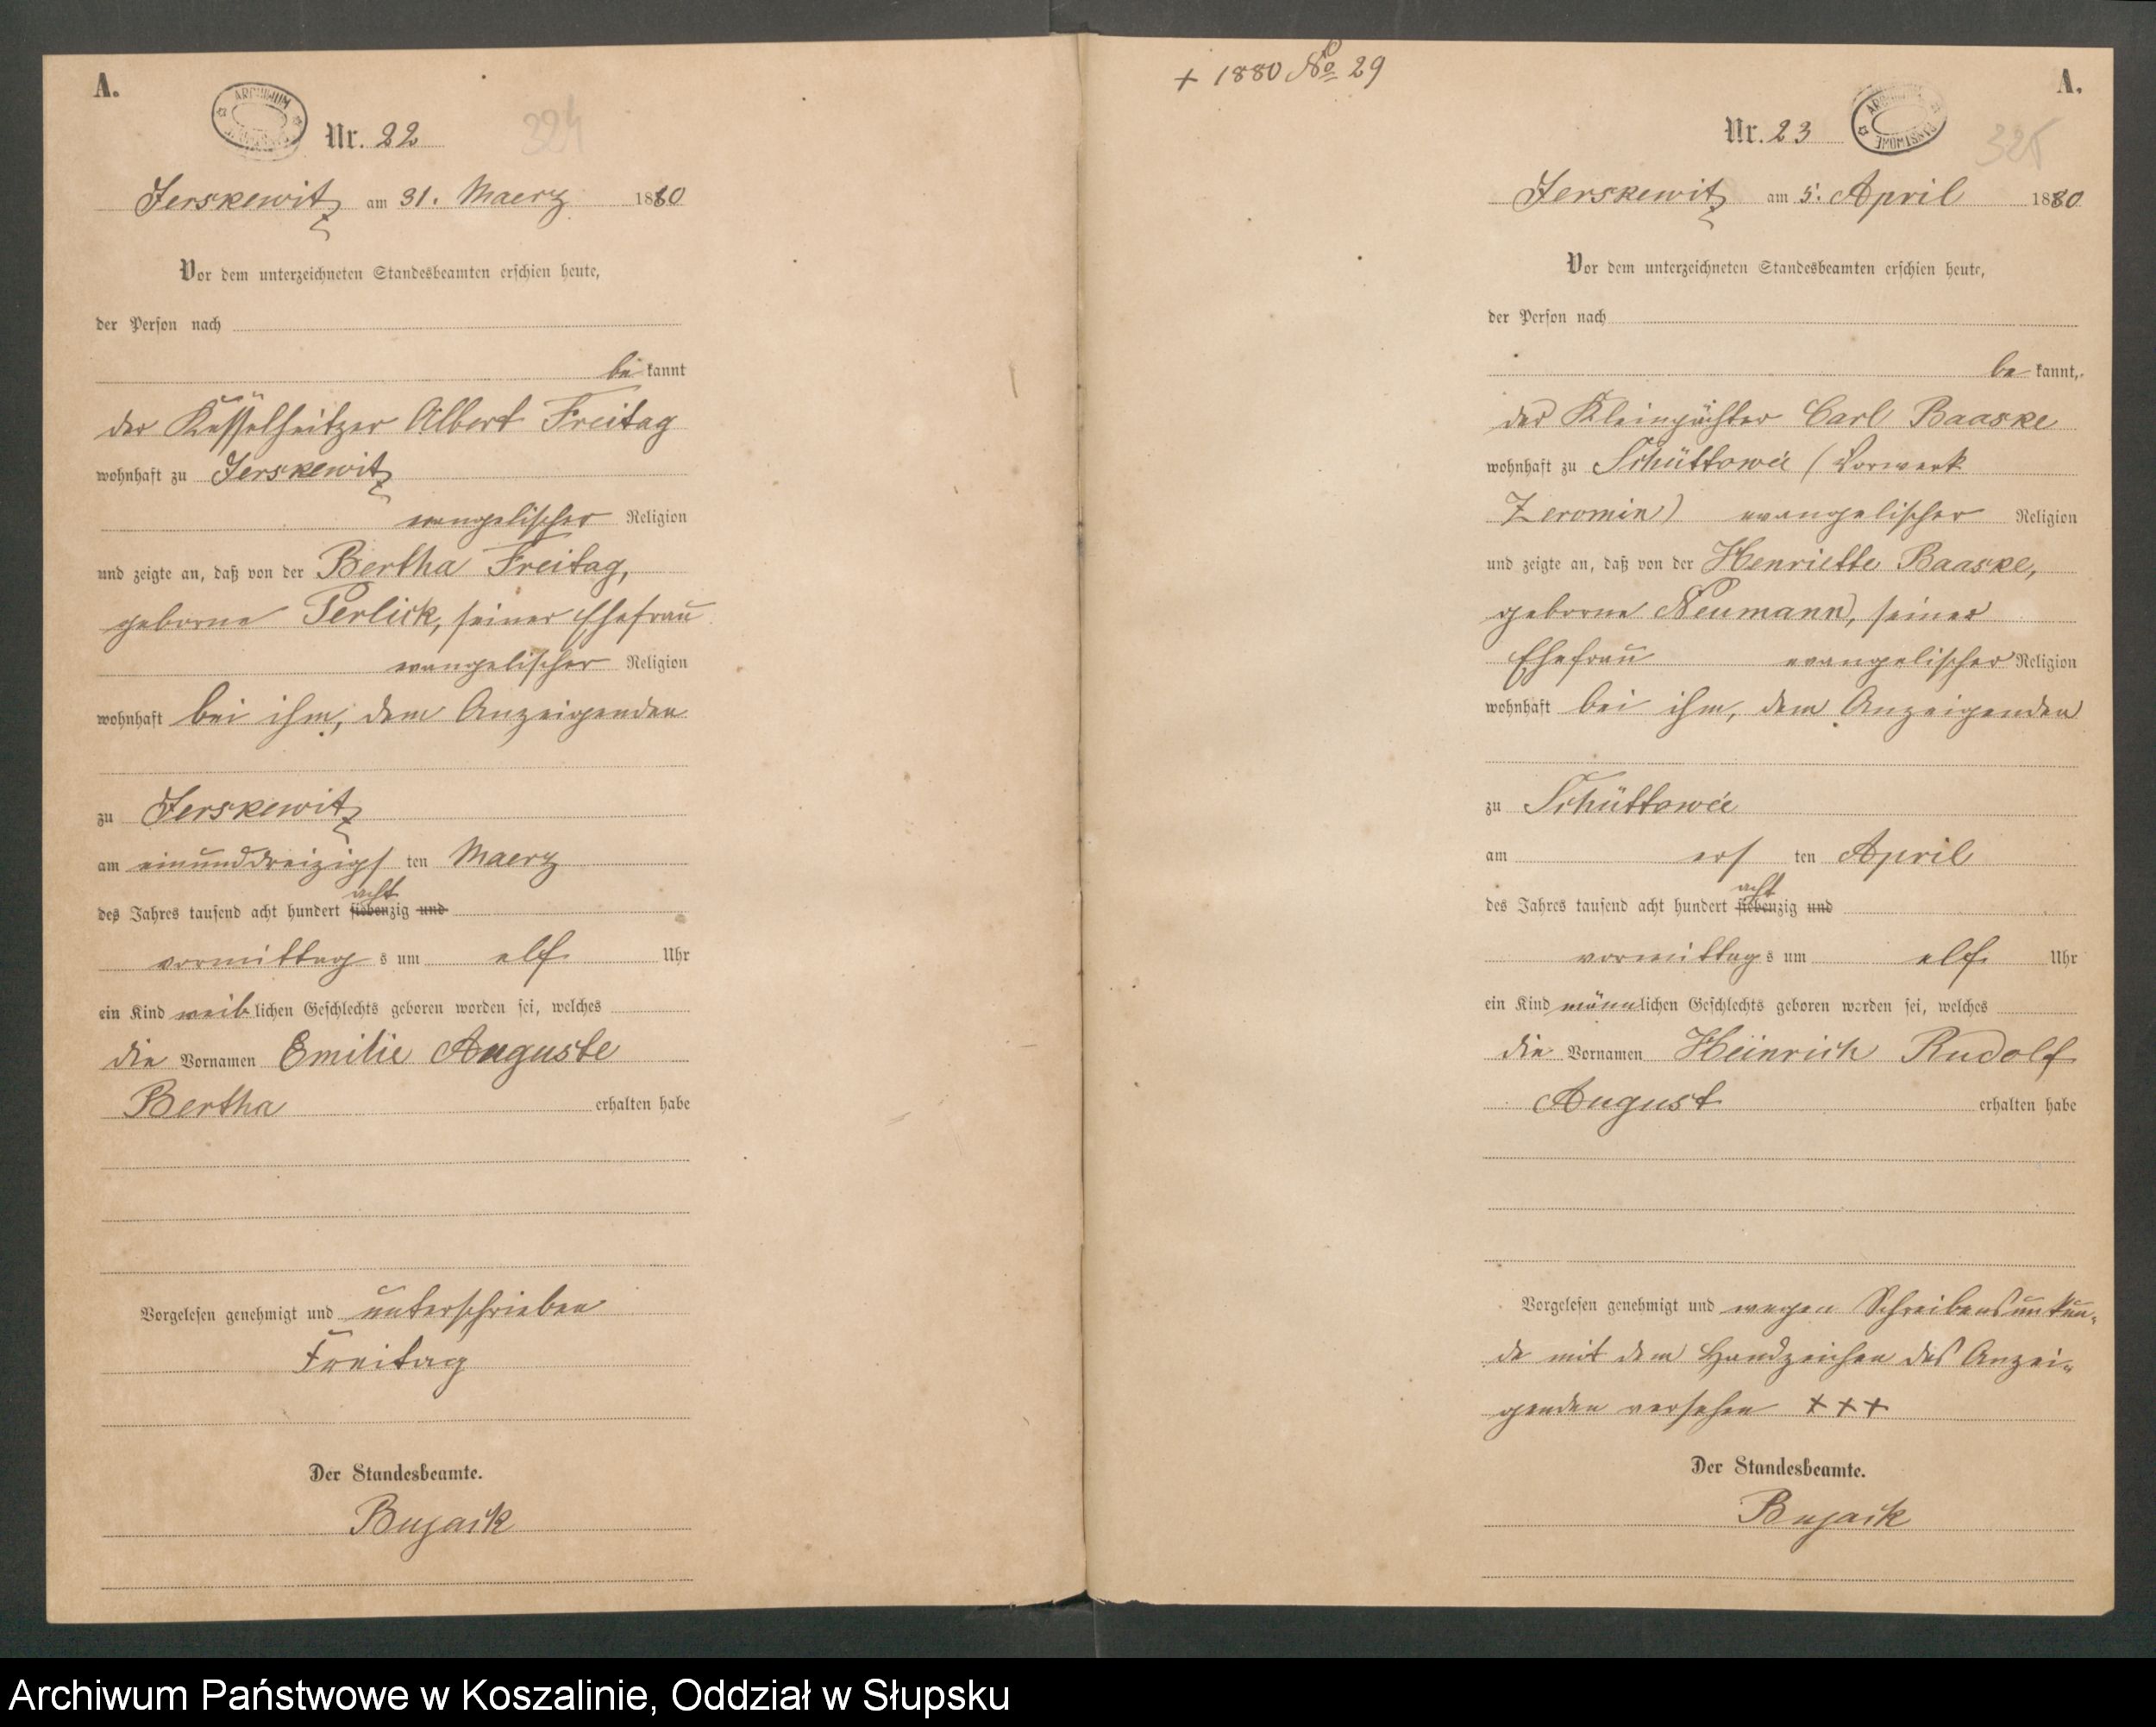 A.
ARCHIWUM
Nr. 22
324
Jerskewitz am 31. Maerz 1880
Vor dem unterzeichneten Standesbeamten erschien heute,
der Person nach
be kannt
der Kesselheitzer Albert Freitag
wohnhaft zu Jerskewitz
evangelischer Religion
und zeigte an, daß von der Bertha Freitag,
geborne Perlick, seiner Ehefrau
evangelischer Religion
wohnhaft bei ihm, dem Anzeigenden
zu Jerskewitz
am einunddreizigs ten Maerz
acht
des Jahres tausend acht hundert siebenzig und
vormittag s um elf Uhr
ein Kind weib lichen Geschlechts geboren worden sei, welches
die Vornamen Emilie Auguste
Bertha erhalten habe
Vorgelesen genehmigt und unterschrieben
Freitag
Der Standesbeamte.
Bujack
+ 1880 No 29
A.
Nr. 23
ARCHIWUM PAŃSTWOWE
325
Jerskewitz am 5. April 1880
Vor dem unterzeichneten Standesbeamten erschien heute,
der Person nach
be kannt,
der Kleinpächter Carl Baaske
wohnhaft zu Schüttowee (Vorwerk
Zeromin) evangelischer Religion
und zeigte an, daß von der Henriette Baaske,
geborne Neumann, seiner
Ehefrau evangelischer Religion
wohnhaft bei ihm, dem Anzeigenden
zu Schüttowee
am ers ten April
acht
des Jahres tausend acht hundert siebenzig und
vormittag s um elf Uhr
ein Kind männlichen Geschlechts geboren worden sei, welches
die Vornamen Heinrich Rudolf
August erhalten habe
Vorgelesen genehmigt und wegen Schreibensunkun-
de mit dem Handzeichen des Anzei-
genden versehen +++
Der Standesbeamte.
Bujack
Archiwum Państwowe w Koszalinie, Oddział w Słupsku